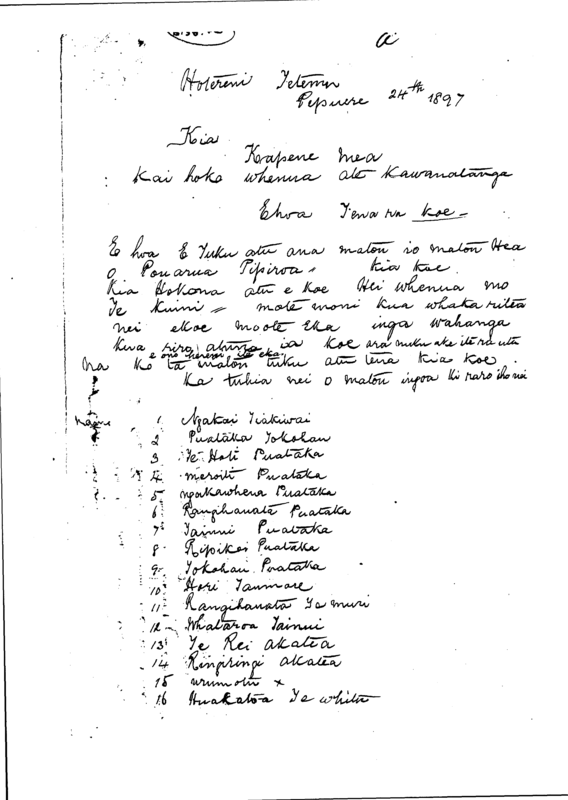 a
Hotereni Tetemu
Pepuere 24th 1897
Kia
Kapene Mea
Kai hoko whenua ate Kawanatanga
Ehoa Tena ra koe -
E hoa E Tuku atu ana matou io matou Hea
o Pouarua Pipiroa kia koe.
Kia Hokona atu e koe Hei whenua mo
Te Kuini - mote moni kua whaka ritea
nei ekoe moote Eka inga wahanga
kua riro ia koe ara muku ake ite ra utu
e ono hereni Te eka
Na Ko ta matou tuku atu tena kia koe.
Ka tuhia nei o matou ingoa ki raro iho nei
1 Ngakai Tiakiwai
2 Puataka Tokohau
3 Te Hoti Puataka
4 meroiti Puataka
5 ngakawhena Puataka
6 Rangihanata Puataka
7 Tainui Puataka
8 Ripikoi Puataka
9 Tokohau Puataka
10 Hori Taumare
11 Rangihanata Ta muri
12 Whataroa Tainui
13 Te Rei akatea
14 Ringiringi akatea
15 urumotu x
16 Huakatoa Te whitu